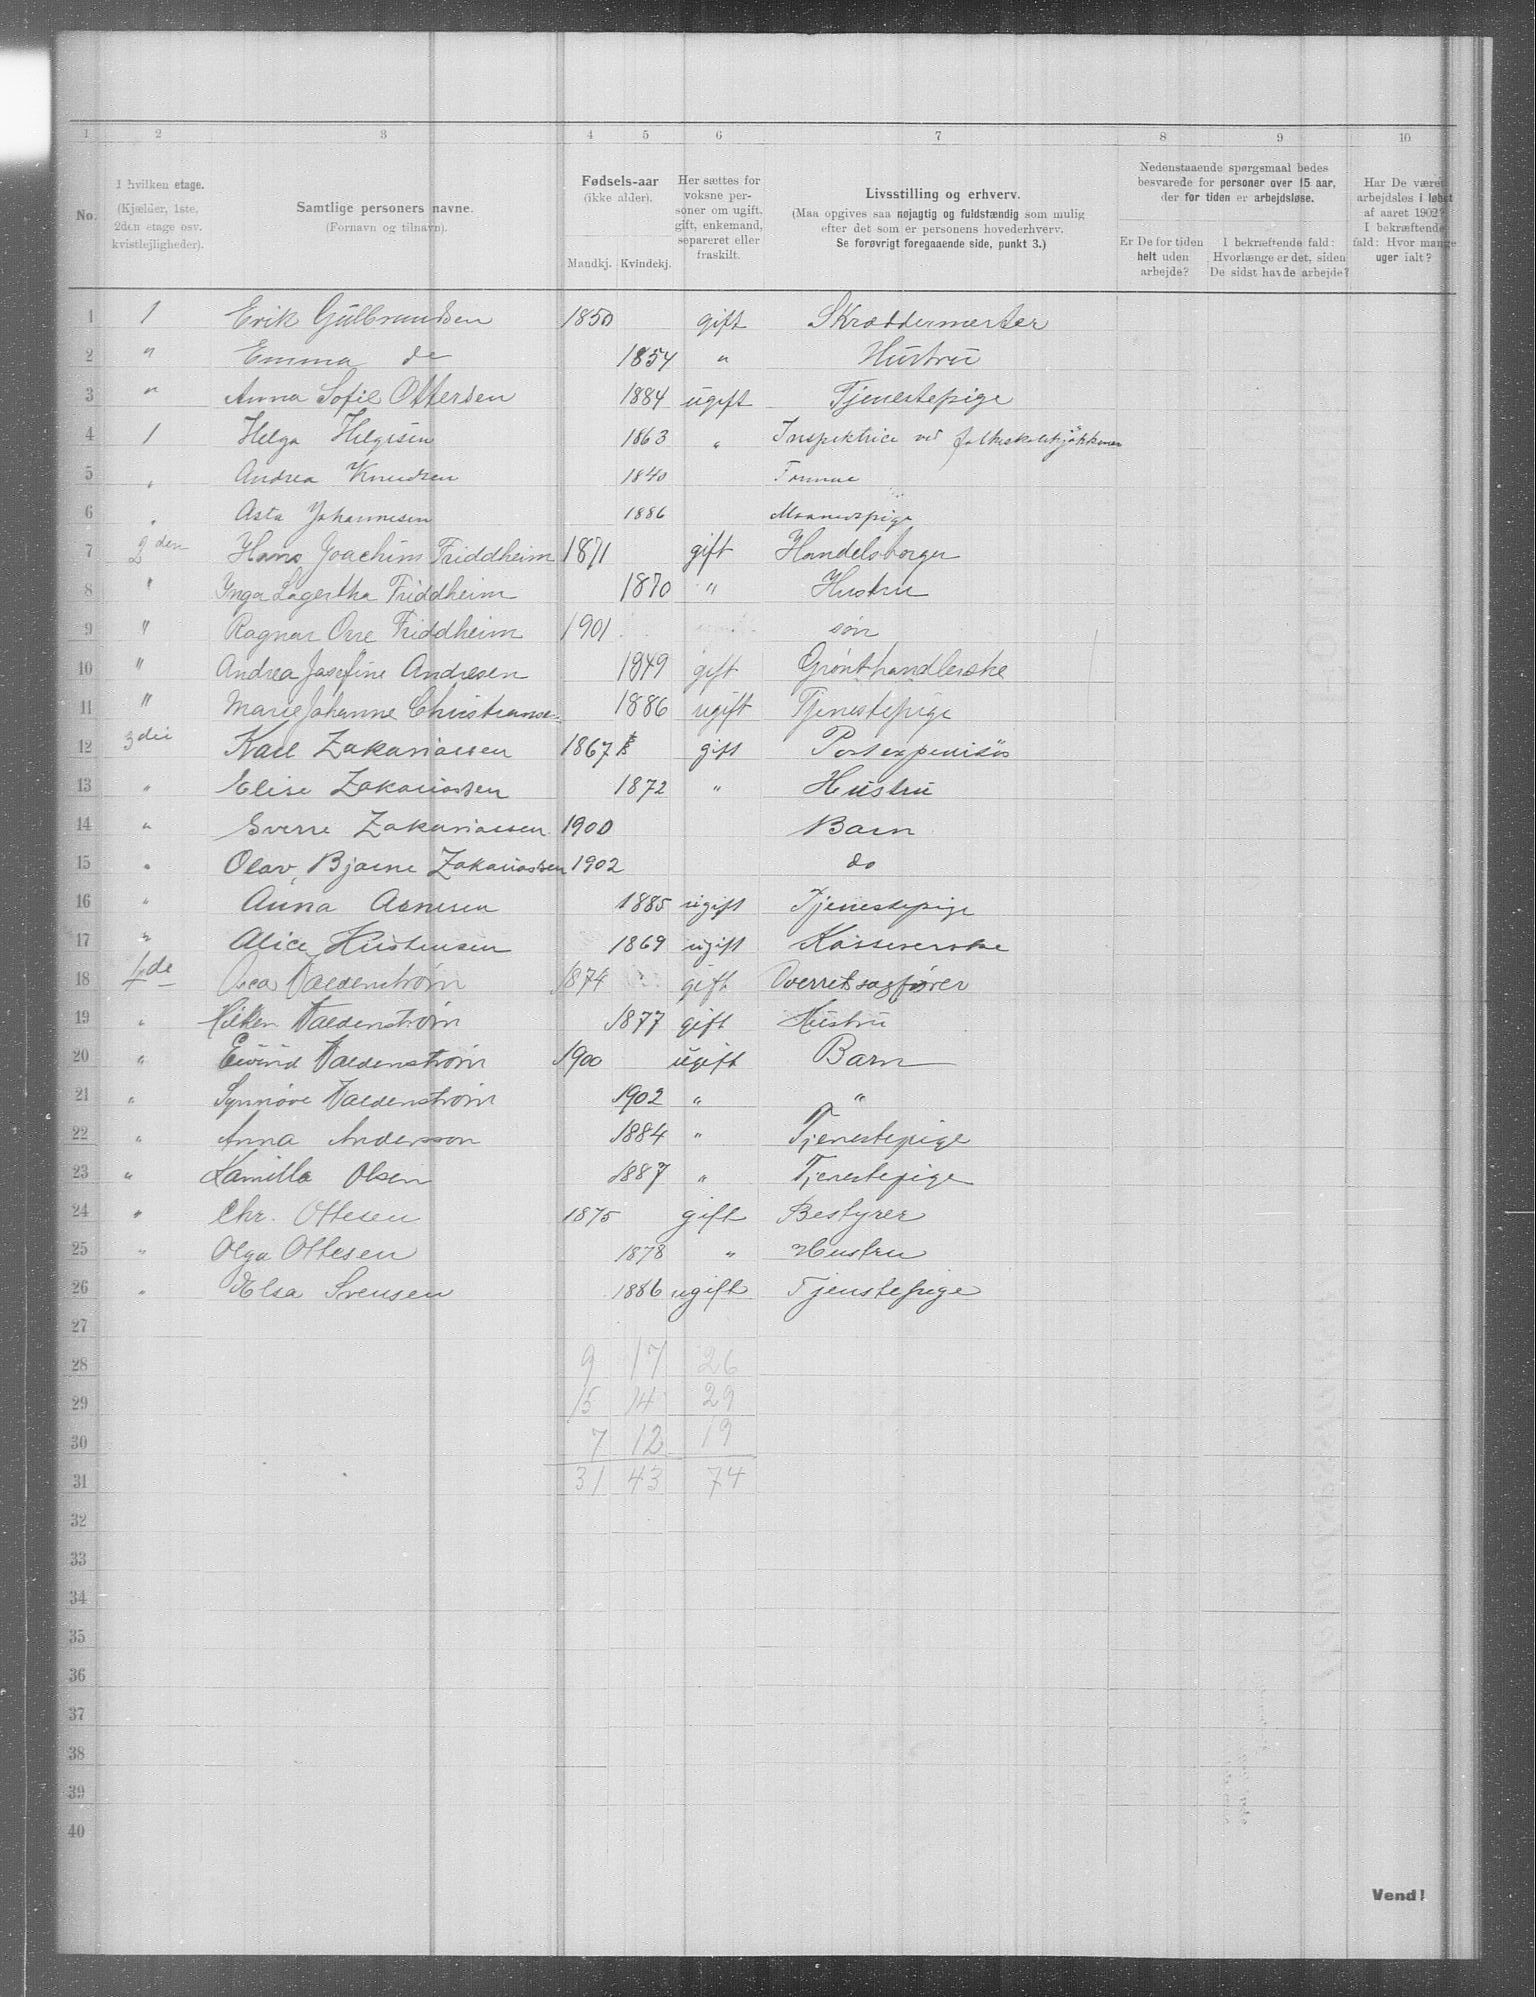 1 2 3 4 5 6 7 8 9 10
No.
I hvilken etage.
(Kjælder, 1ste,
2den etage osv.
kvistlejligheder).
Samtlige personers navne.
(Fornavn og tilnavn).
Fødsels-aar
(ikke alder).
Mandkj. Kvindekj.
Her sættes for
voksne per-
soner om ugift,
gift, enkemand,
separeret eller
fraskilt.
Livsstilling og erhverv.
(Maa opgives saa nøjagtig og fuldstændig som mulig
efter det som er personens hovederhverv.
Se forøvrigt foregaaende side, punkt 3.)
Nedenstaaende spørgsmaal bedes
besvarede for personer over 15 aar,
der for tiden er arbejdsløse.
Er De for tiden
helt uden
arbejde?
I bekræftende fald:
Hvorlænge er det, siden
De sidst havde arbejde?
Har De været
arbejdsløs i løbet
af aaret 1902?
I bekræftende
fald: Hvor mange
uger ialt?
1 1 Erik Gulbrandsen 1850 gift Skræddermester
2 " Emma do 1854 " Hustru
3 " Anna Sofie Ottersen 1884 ugift Tjenestepige
4 1 Helga Helgesen 1863 " Inspektrice ved folkeskolekjøkkenen
5 " Andrea Knudsen 1840
6 " Asta Johannesen 1886 Maanedspige
7 2den Hans Joachim Friddheim 1871 gift Handelsborger
8 " Inga Lagertha Friddheim 1870 " Hustru
9 " Ragnar Orre Friddheim 1901 søn
10 " Andrea Josefine Andresen 1849 gift Grønthandlerske
11 " Marie Johanne Christianse- 1886 ugift Tjenestepige
12 3die Karl Zakariassen 1867 gift Postexpeditør
13 " Elise Zakariassen 1872 " Hustru
14 " Sverre Zakariassen 1900 Barn
15 " Olav, Bjarne Zakariassen 1902 do
16 " Anna Arnesen 1885 ugift Tjenestepige
17 " Alice 1869 ugift Kassererske
18 4de Valdenstrøm 1874 gift Overretssagfører
19 " Valdenstrøm 1877 gift Hustru
20 " Eivind Valdenstrøm 1900 ugift Barn
21 " Synnøve Valdenstrøm 1902 " "
22 " Anna Andersson 1884 " Tjenestepige
23 " Kamilla Olsen 1887 " Tjenestepige
24 " Chr. Ottesen 1875 gift Bestyrer
25 " Olga Ottesen 1878 " Hustru
26 " Elsa Svensen 1886 ugift Tjenstepige
27
28 9 17 26
29 15 14 29
30 7 12 19
31 31 43 74
32
33
34
35
36
37
38
39
40
Vend!